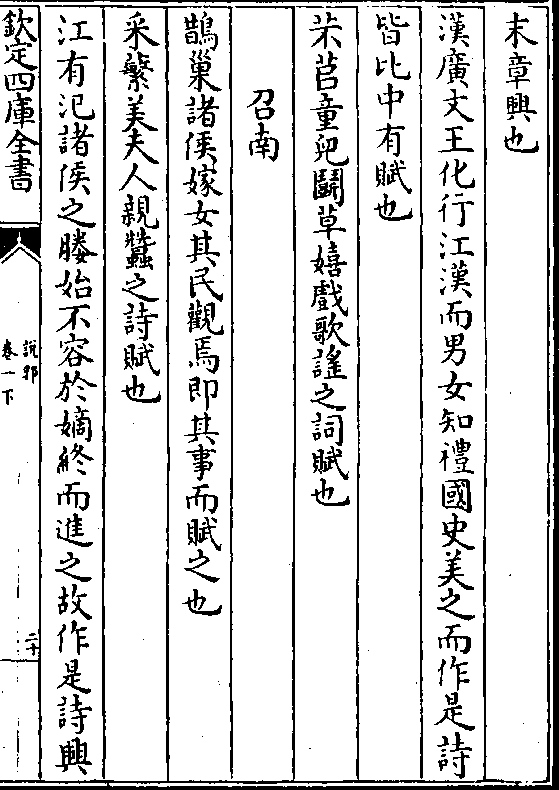 末章興也
漢廣文王化行江漢而男女知禮國史美之而作是詩
皆比中有賦也
芣苢童兒鬭草嬉戲歌謠之詞賦也
召南
鵲巢諸侯嫁女其民觀焉即其事而賦之也
采蘩美夫人親蠶之詩賦也
江有汜諸侯之媵始不容於嫡終而進之故作是詩興
欽定四庫全書
說郛
卷一下
二十